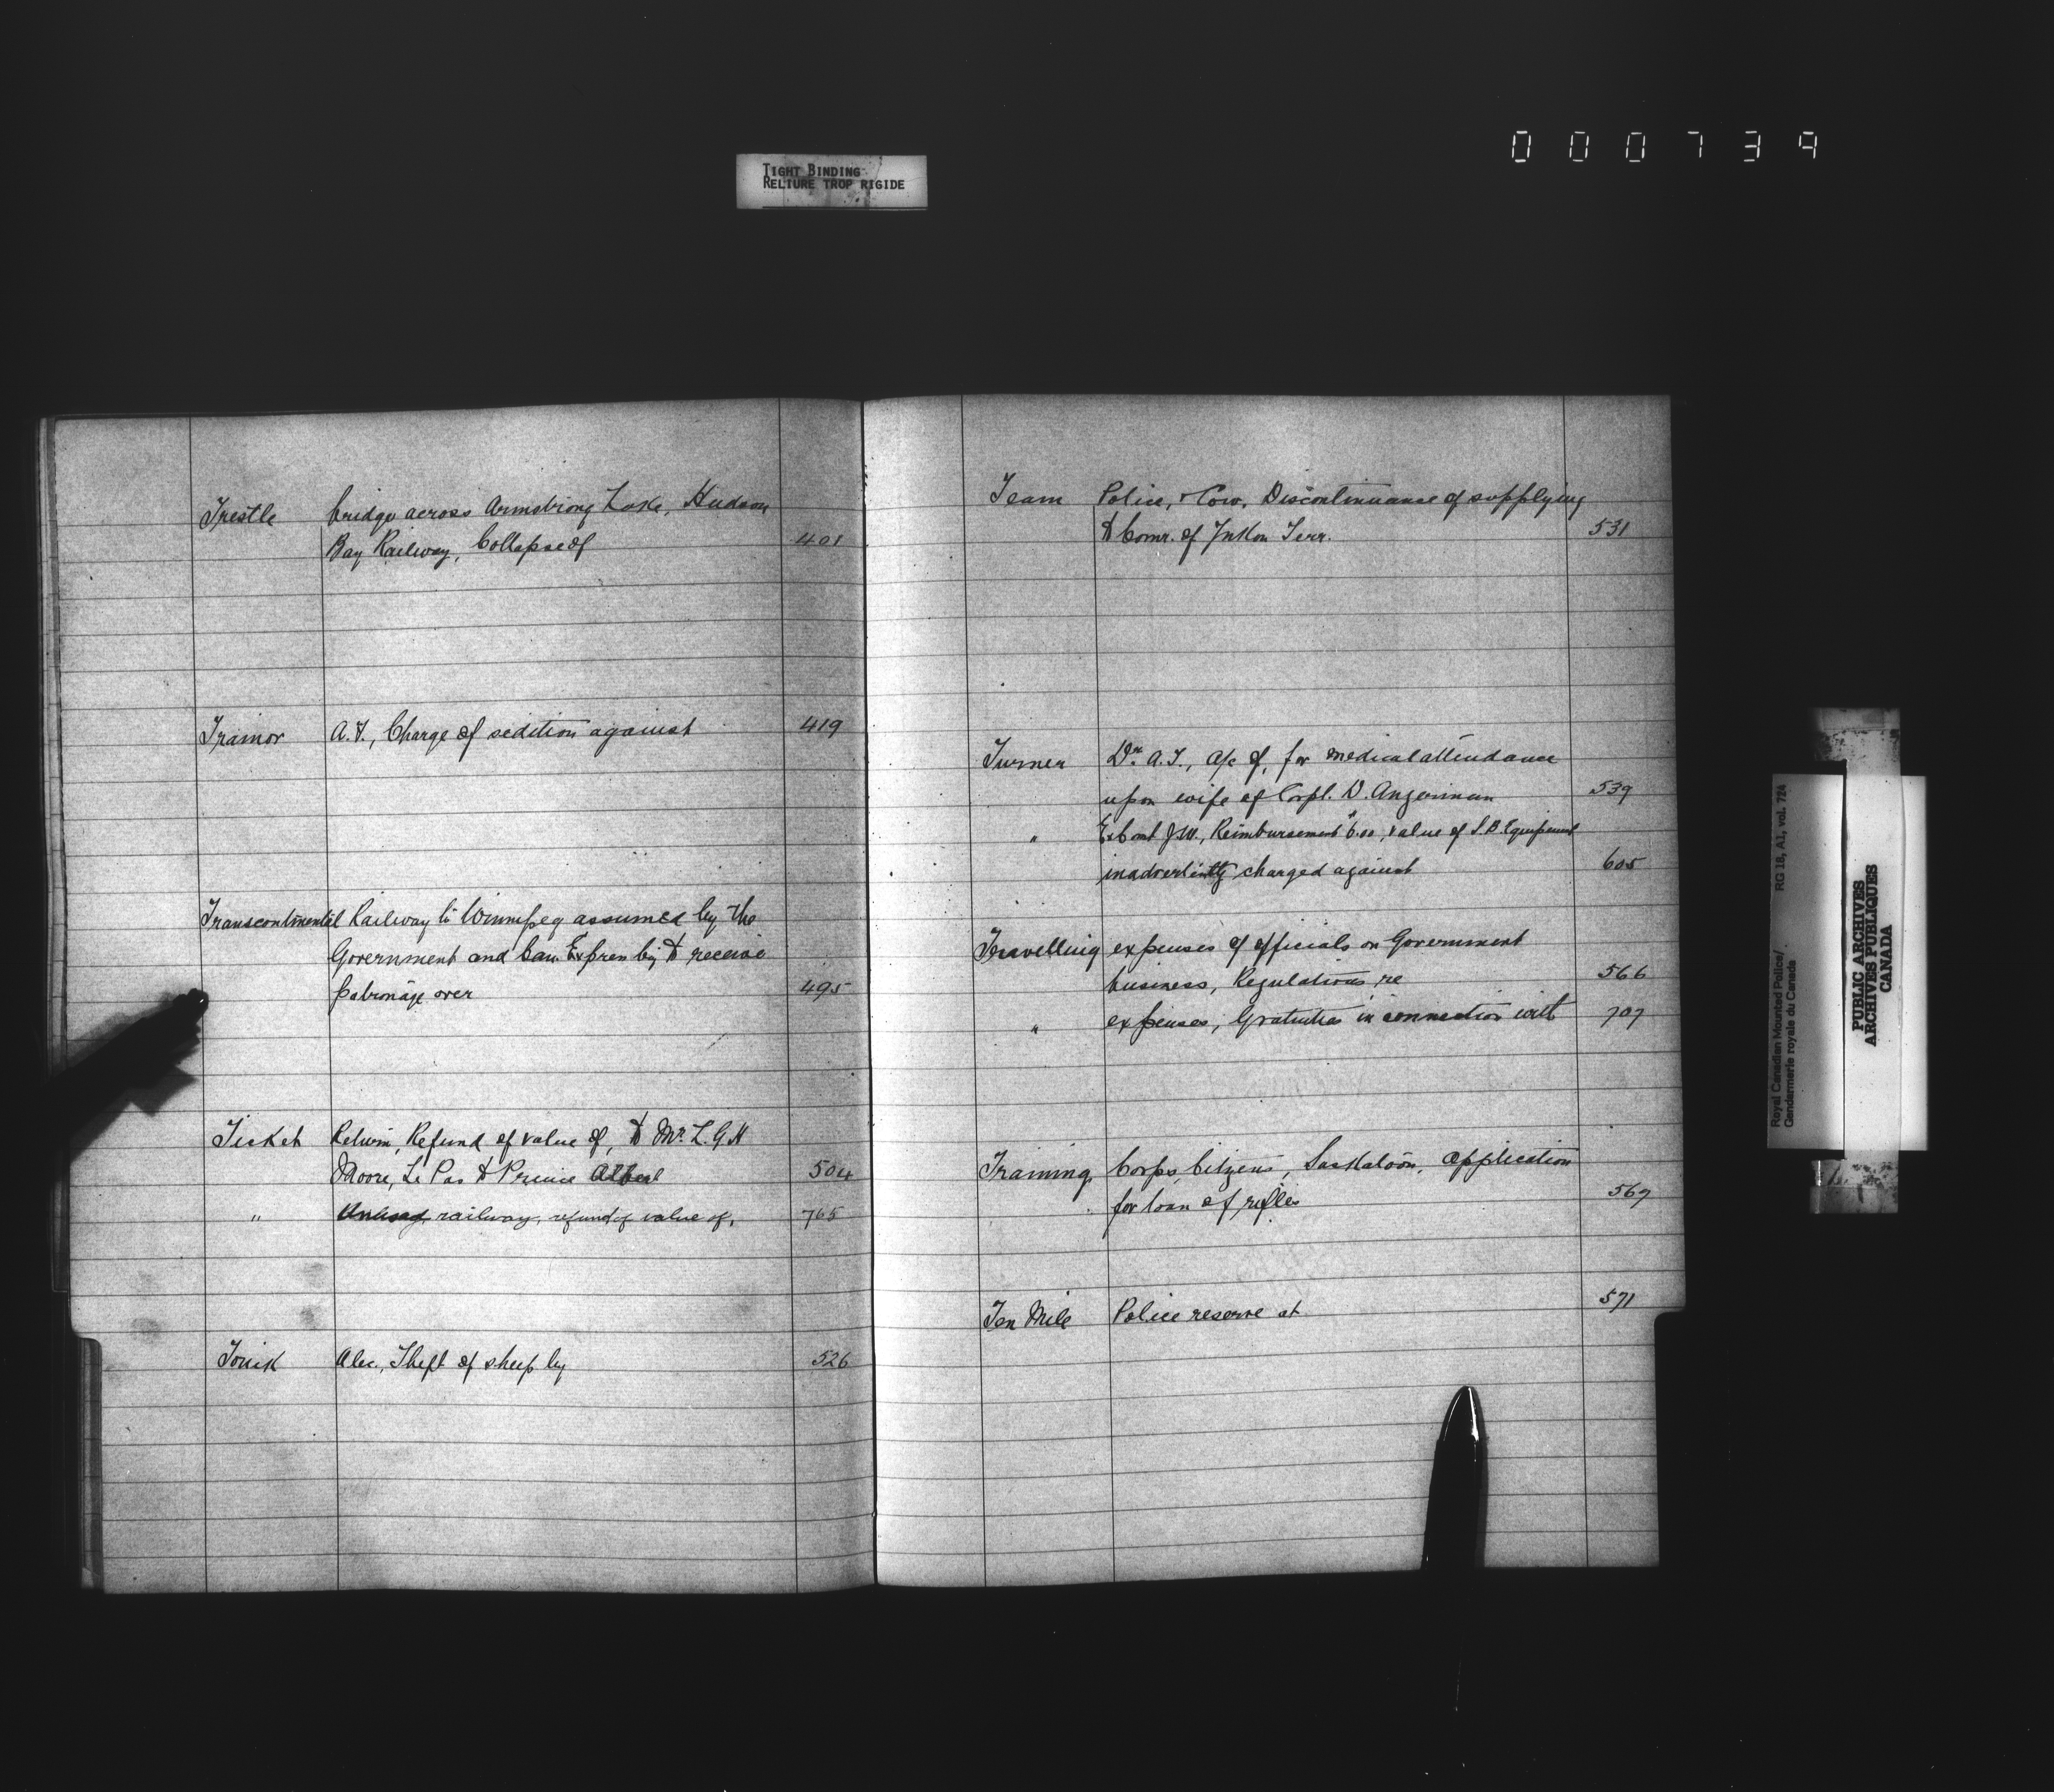 000739
TIGHT BINDING
RELIURE TROP RIGIDE
Trestle bridge across Armstrong Lake, Hudson
Bay Railway, Collapse of 401
Trainor A.F., Charge of sedition against 419
Transcontinental Railway to Winnipeg assumed by the
Government and Can. Express Coy to receive
patronage over 495
Ticket Return, Refund of value of, to Mr. L.G.H
Moore, Le Pas to Prince Albert 504
" Unused railway, refund of value of, 765
Tonik Alec, Theft of sheep by 526
Team Police, & Cow, Discontinuance of supplying
to Comr. of Yukon Terr. 531
Turner Dr. A.T., a/c of, for medical attendance
upon wife of Corpl. D. Angerman 539
" Ex Const J.W., Reimbursement $6.00, value of S.B. Equipment
inadvertently charged against 605
Travelling expenses of officials on Government
business, Regulations re 566
" expenses, Gratuities in connection with 707
Training Corps, Citizens, Saskatoon, application
for loan of rifles 567
Ten Mile Police reserve at 571
Royal Canadian Mounted Police/
Gendarmerie royale du Canada
RG 18, A1, vol. 724
PUBLIC ARCHIVES
ARCHIVES PUBLIQUES
CANADA